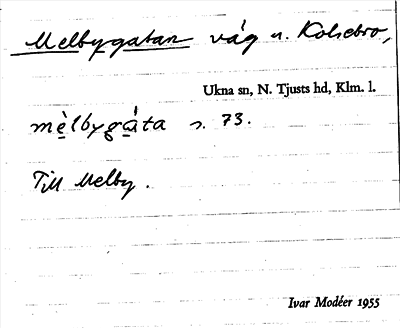 Melbygatan väg n. Kolsebro,
Ukna sn, N. Tjusts hd, Klm. l.
mèlbygáta s. 73.
Till Melby.
Ivar Modéer 1955